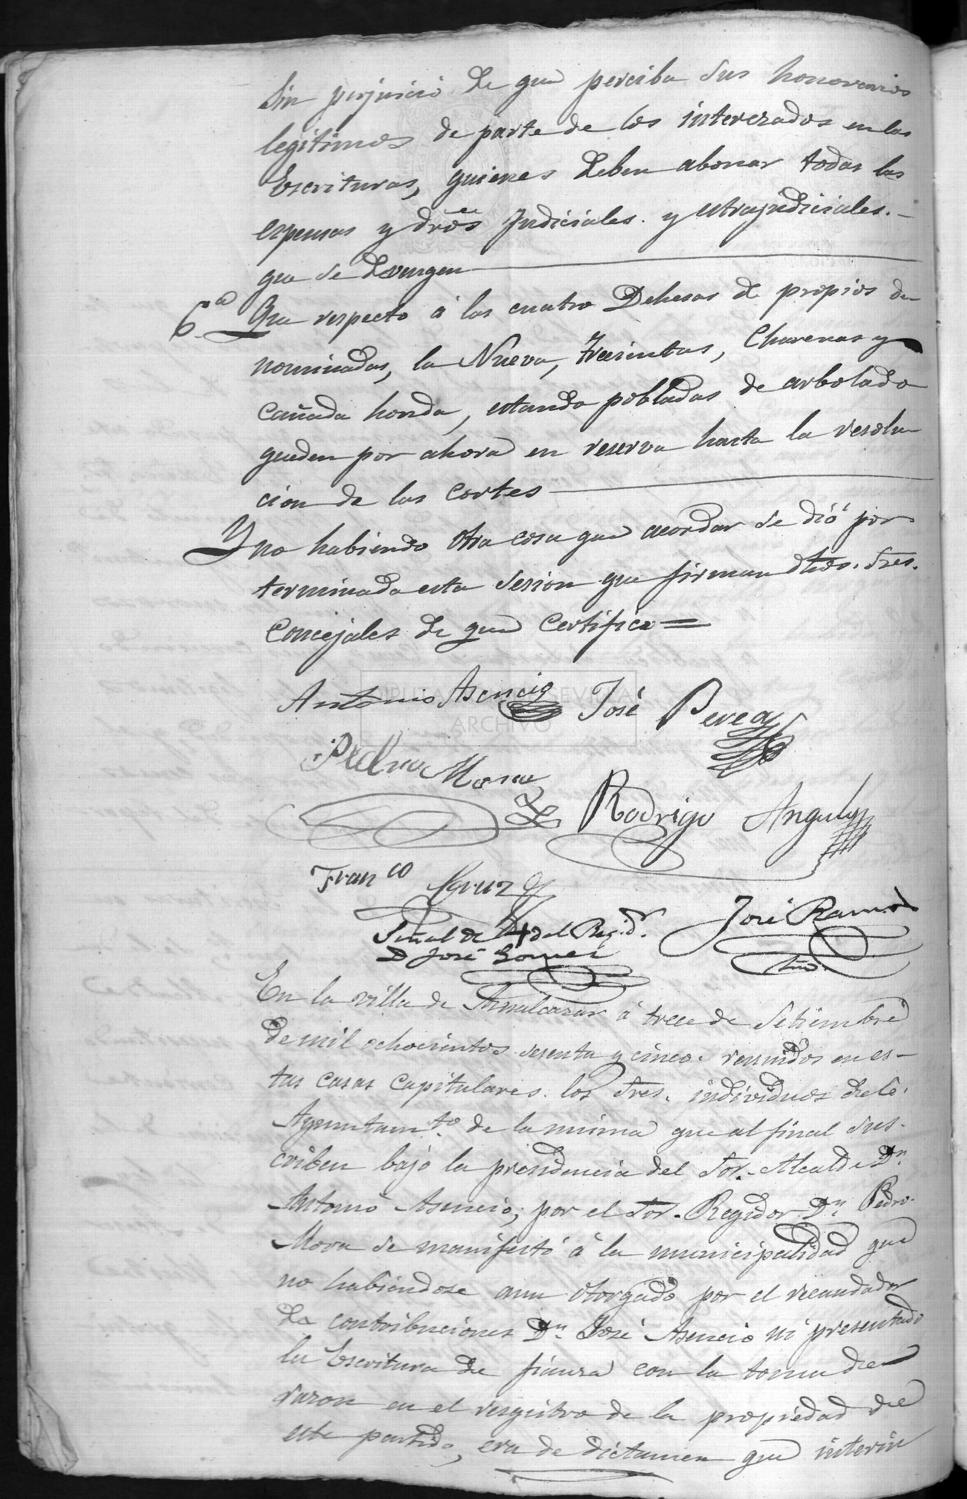 sin perjuicio de que perciba sus honorarios
legitimos de parte de los interezados en las
Escrituras, quienes deben abonar todas las
espensas y dros Judiciales. y estrajudiciales.-
que se devenguen
6.ª Que respecto á las cuatro Dehesas de propios de
nominadas, la Nueva, Trecientas, Charenas y
cañada honda, estando pobladas de arbolado
queden por ahora en reserva hasta la resolu
cion de las Cortes
Y no habiendo otra cosa que acordar se dió por
terminada esta Sesion que firman dhos. Sres.
Concejales de que Certifico=
Antonio Asencio José Perea
Pedro Mora
Rodrigo Angulo
Franco Cruz
Señal de + del Regidr.
D José Gomez
José Ramos
Srio.
En la villa de Aznalcazar á trece de Setiembre
de mil ochocientos sesenta y cinco. reunidos en es-
tas casas Capitulares. los Sres. individuos de el
Ayuntamto. de la misma que al final sus-
criben bajo la presidencia del Sor. Alcalde Dn.
Antonio Asencio; por el Sor. Regidor Dn. Pedro
Mora se manifestó á la municipalidad que
no habiendose aun otorgado por el recaudador
de contribuciones Dn. José Asencio ni presentado
la Escritura de fianza con la toma de
razon en el resgistro de la propiedad de
este partido, era de dictamen que interin
DIPUTACIÓN DE SEVILLA
ARCHIVO